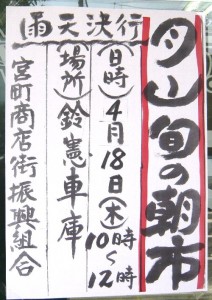 月山旬の朝市
雨天決行
(日時)4月18日(木)
10時～12時
(場所)鈴憲車庫
宮町商店街振興組合